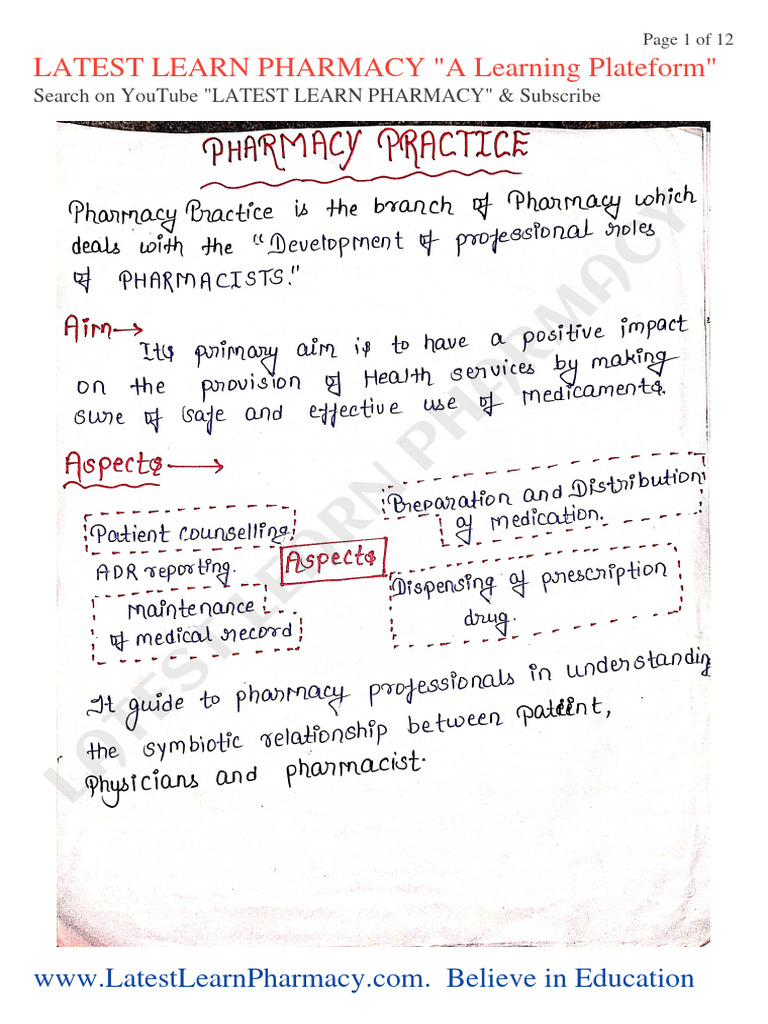 Page 1 of 12
LATEST LEARN PHARMACY "A Learning Plateform"
Search on YouTube "LATEST LEARN PHARMACY" & Subscribe
PHARMACY PRACTICE
Pharmacy Practice is the branch of Pharmacy which
deals with the "Development of professional roles
of PHARMACISTS."
Aim→
Its primary aim is to have a positive impact
on the provision of Health services by making
sure of safe and effective use of Medicaments.
Aspects→
Patient counselling
ADR reporting.
Maintenance
of medical record
Aspects
Preparation and Distribution
of Medication.
Dispensing of prescription
drug.
It guide to pharmacy professionals in understanding
the symbiotic relationship between patient,
Physicians and pharmacist.
LATEST LEARN PHARMACY
www.LatestLearnPharmacy.com. Believe in Education